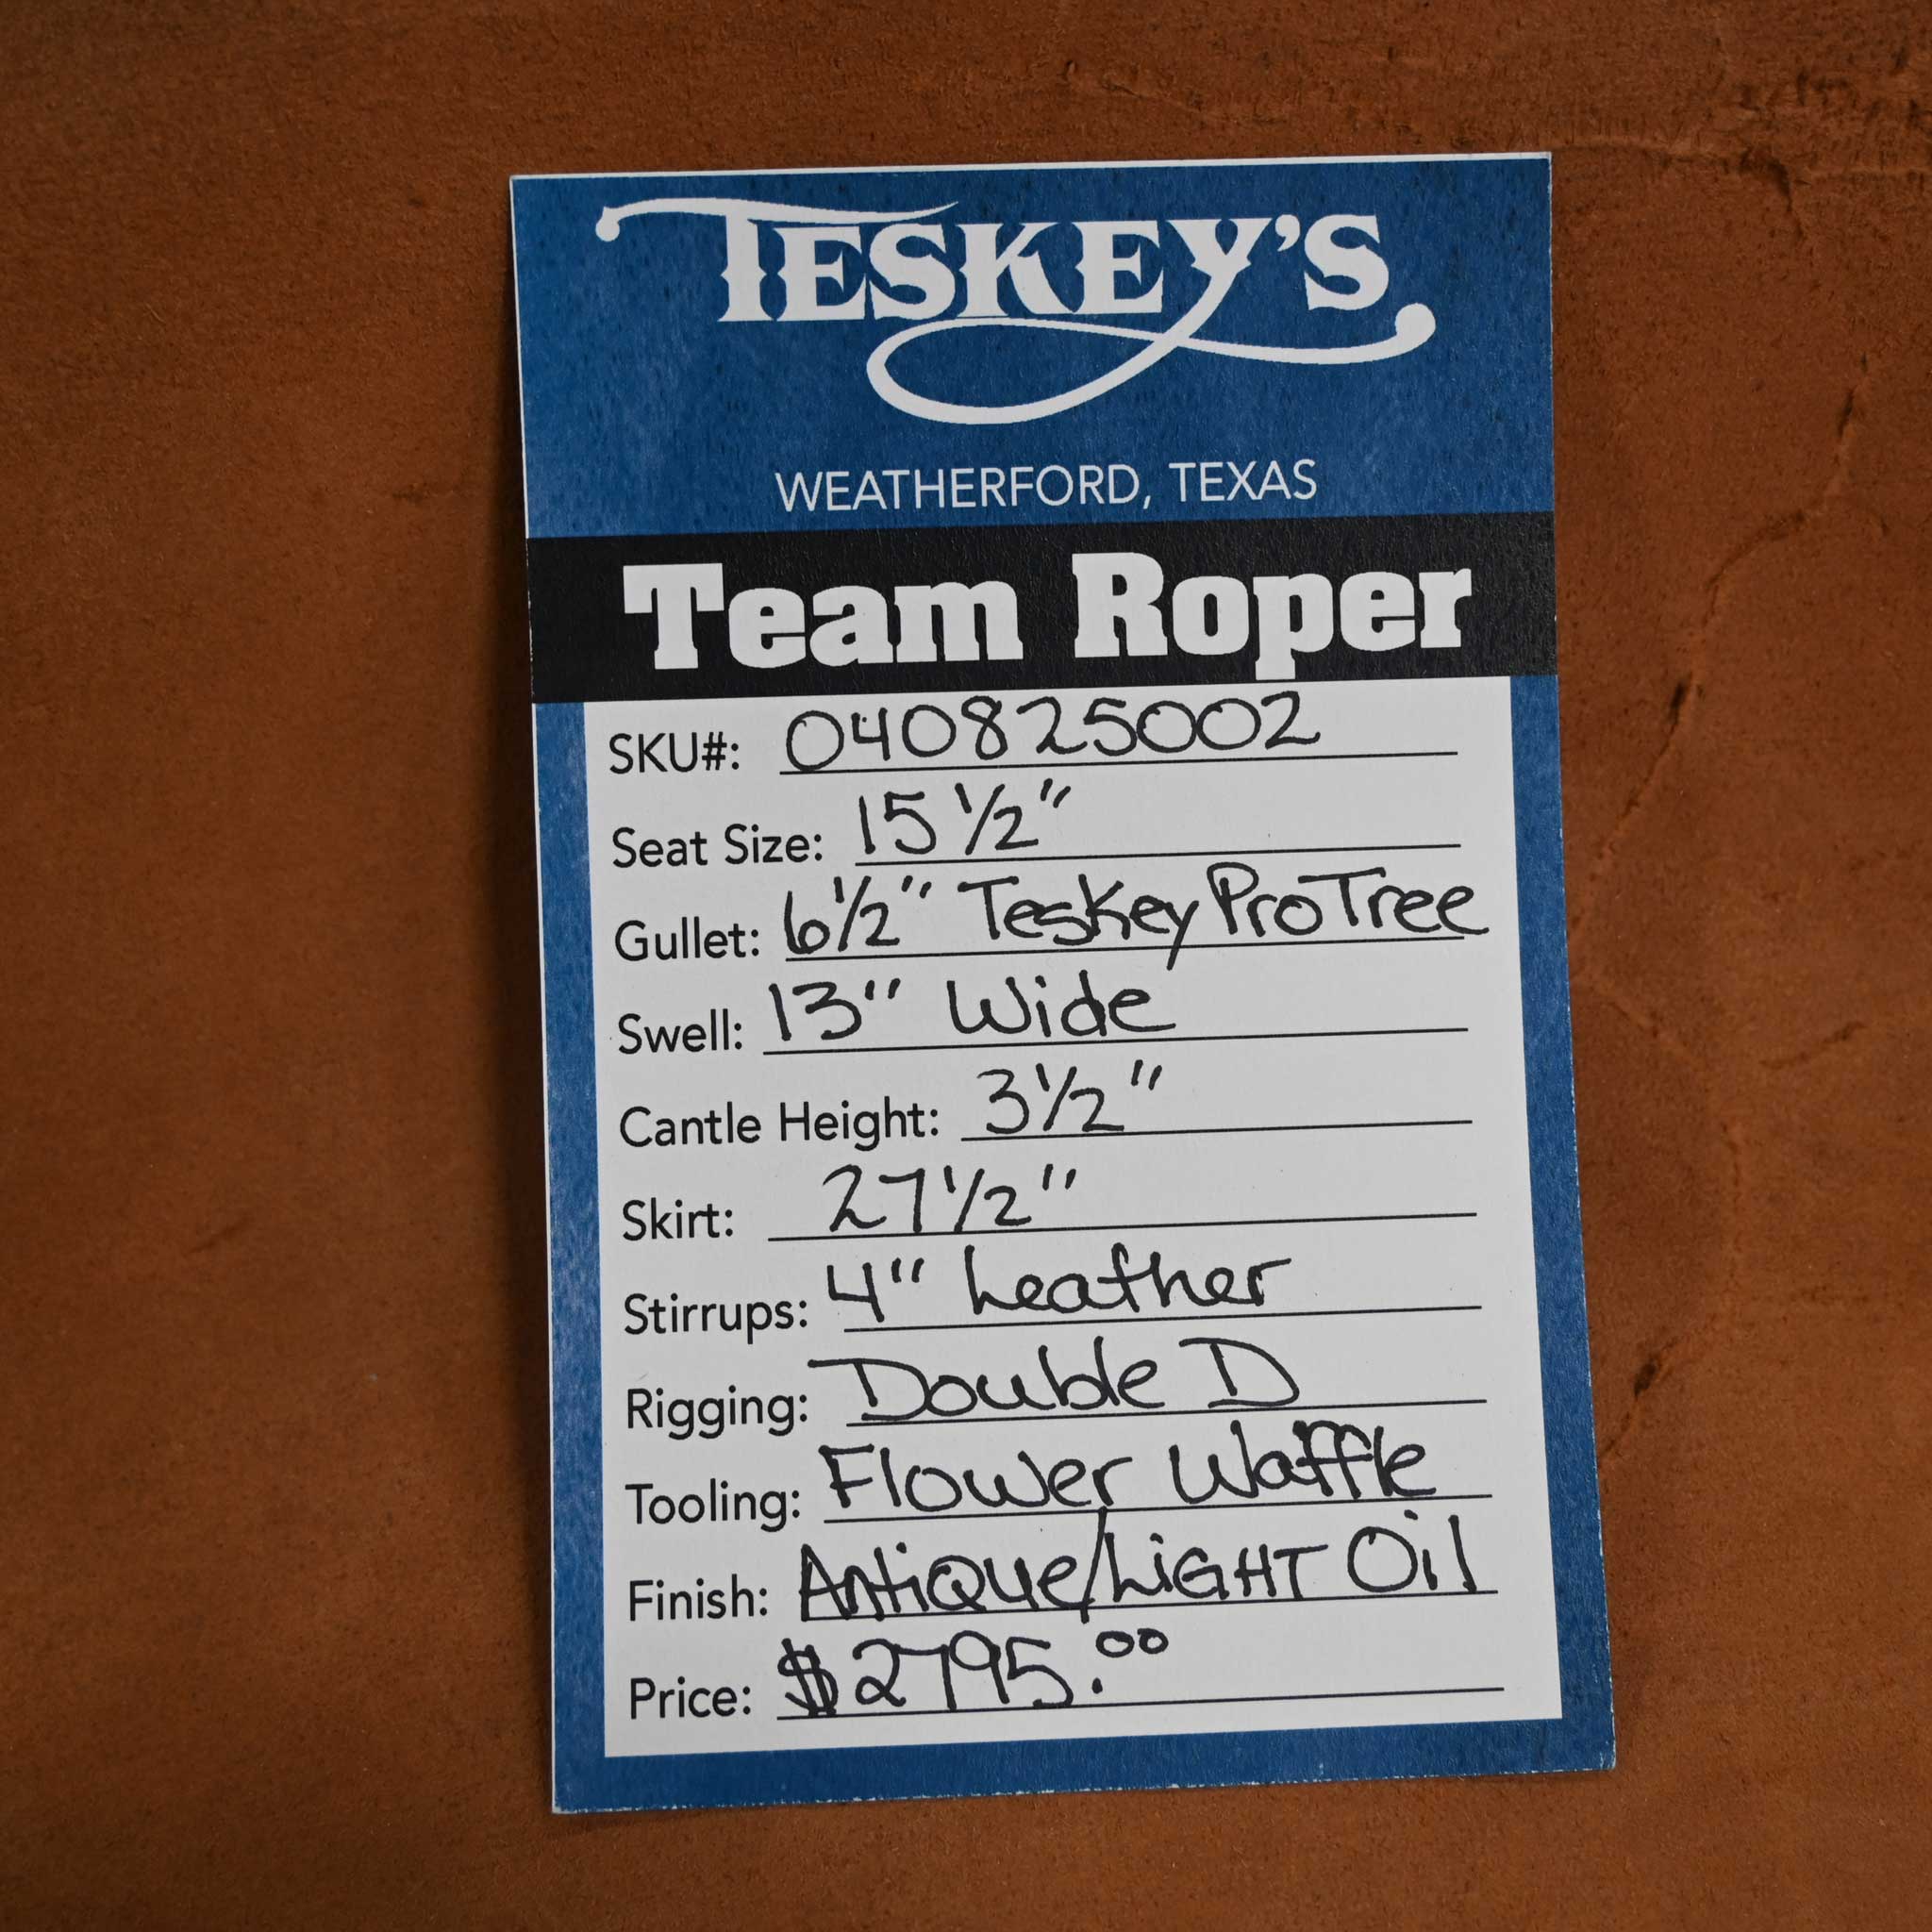 TESKEY'S
WEATHERFORD, TEXAS
Team Roper
SKU#: 040825002
Seat Size: 15 1/2"
Gullet: 6 1/2" Teskey Pro Tree
Swell: 13" Wide
Cantle Height: 3 1/2"
Skirt: 27 1/2"
Stirrups: 4" Leather
Rigging: Double D
Tooling: Flower Waffle
Finish: Antique/LiGHT Oil
Price: $2795.00